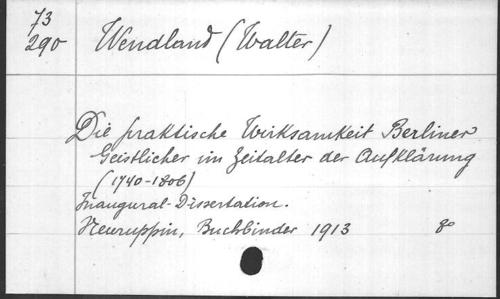 73
290
Wendland (Walter)
Die praktische Wirksamkeit Berliner
Geistlicher im Zeitalter der Aufklärung
(1740-1806)
Inaugural-Dissertation.
Neuruppin, Buchbinder 1913 8o